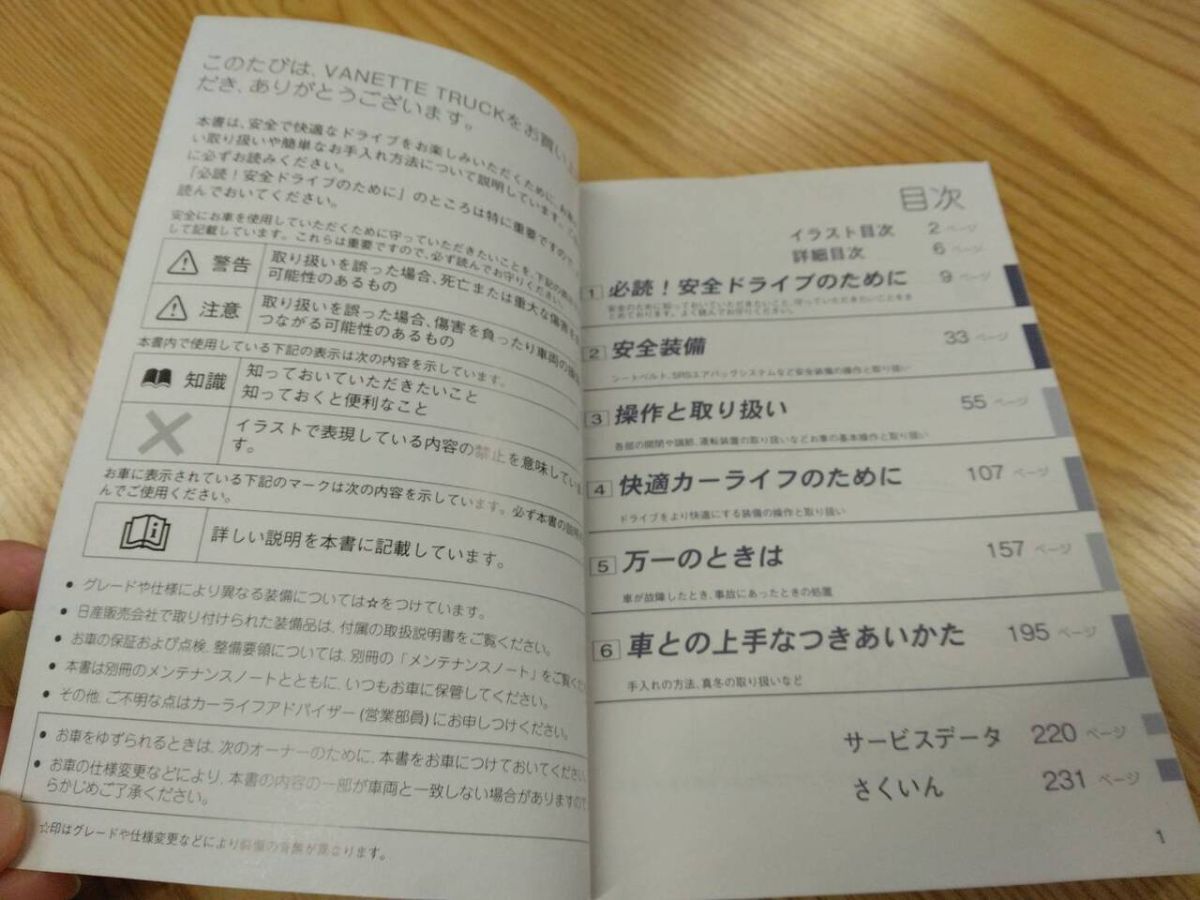 このたびは、VANETTE TRUCKをお買い
だき、ありがとうございます。
本書は、安全で快適なドライブをお楽しみいただくために、お車の
い取り扱いや簡単なお手入れ方法について説明しています。
に必ずお読みください。
「必読！安全ドライブのために」のところは特に重要ですので、
読んでおいてください。
安全にお車を使用していただくために守っていただきたいことを、下記の表示
して記載しています。これらは重要ですので、必ず読んでお守りください。
警告
取り扱いを誤った場合、死亡または重大な傷害
可能性のあるもの
注意
取り扱いを誤った場合、傷害を負ったり車両の損
つながる可能性のあるもの
本書内で使用している下記の表示は次の内容を示しています。
知識
知っておいていただきたいこと
知っておくと便利なこと
イラストで表現している内容の禁止を意味していま
す。
お車に表示されている下記のマークは次の内容を示しています。必ず本書の説明
んでご使用ください。
詳しい説明を本書に記載しています。
● グレードや仕様により異なる装備については☆をつけています。
● 日産販売会社で取り付けられた装備品は、付属の取扱説明書をご覧ください。
● お車の保証および点検、整備要領については、別冊の「メンテナンスノート」をご覧くだ
● 本書は別冊のメンテナンスノートとともに、いつもお車に保管してください。
● その他、ご不明な点はカーライフアドバイザー(営業部員)にお申しつけください。
● お車をゆずられるときは、次のオーナーのために、本書をお車につけておいてください
● お車の仕様変更などにより、本書の内容の一部が車両と一致しない場合がありますので
らかじめご了承ください。
☆印はグレードや仕様変更などにより装備の有無が異なります。
目次
イラスト目次 2 ページ
詳細目次 6 ページ
1 必読！安全ドライブのために 9 ページ
安全のために知っておいていただきたいこと、守っていただきたいことをま
とめております。よく読んでお守りください。
2 安全装備 33 ページ
シートベルト、SRSエアバッグシステムなど安全装備の操作と取り扱い
3 操作と取り扱い 55 ページ
各部の開閉や調節、運転装置の取り扱いなどお車の基本操作と取り扱い
4 快適カーライフのために 107 ページ
ドライブをより快適にする装備の操作と取り扱い
5 万一のときは 157 ページ
車が故障したとき、事故にあったときの処置
6 車との上手なつきあいかた 195 ページ
手入れの方法、真冬の取り扱いなど
サービスデータ 220 ページ
さくいん 231 ページ
1